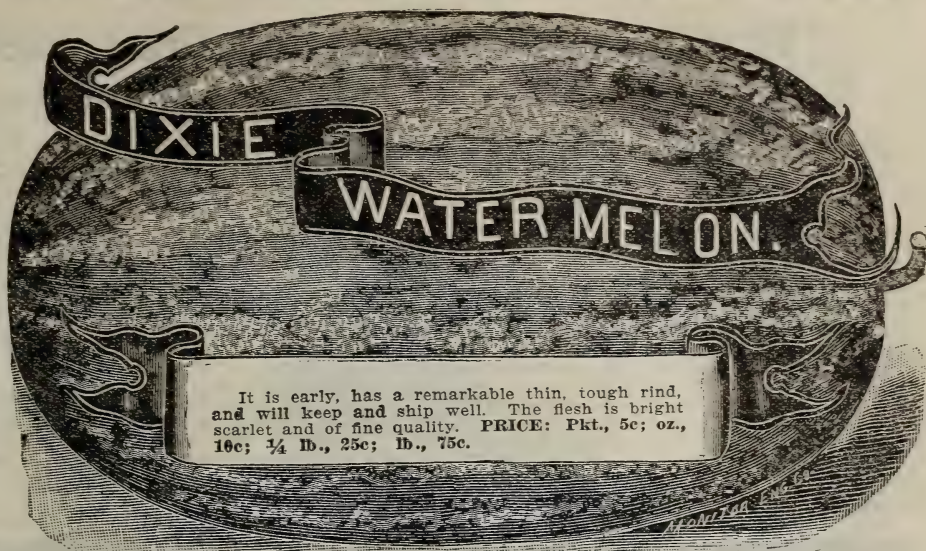 DIXIE
WATER MELON.
It is early, has a remarkable thin, tough rind,
and will keep and ship well. The flesh is bright
scarlet and of fine quality. PRICE: Pkt., 5c; oz.,
10c; ¼ lb., 25c; lb., 75c.
MONITOR ENG CO